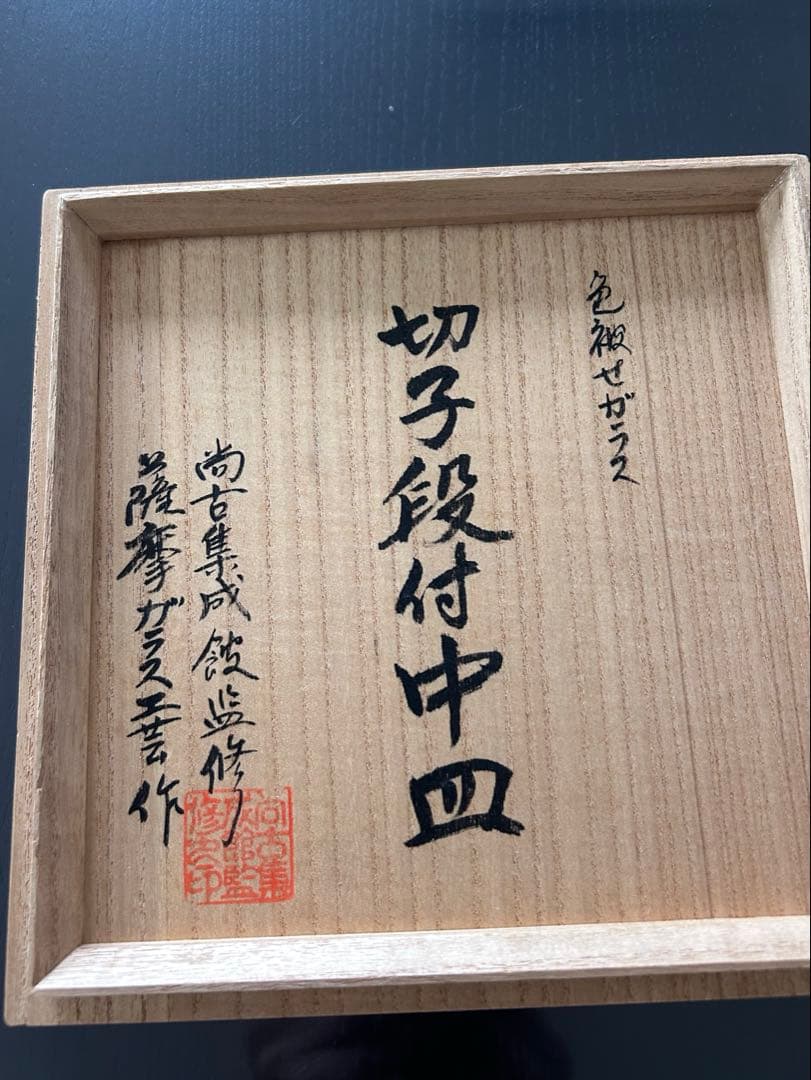 色被せガラス
切子段付中皿
尚古集成館監修
薩摩ガラス工芸作
尚古集
成館監
修之印